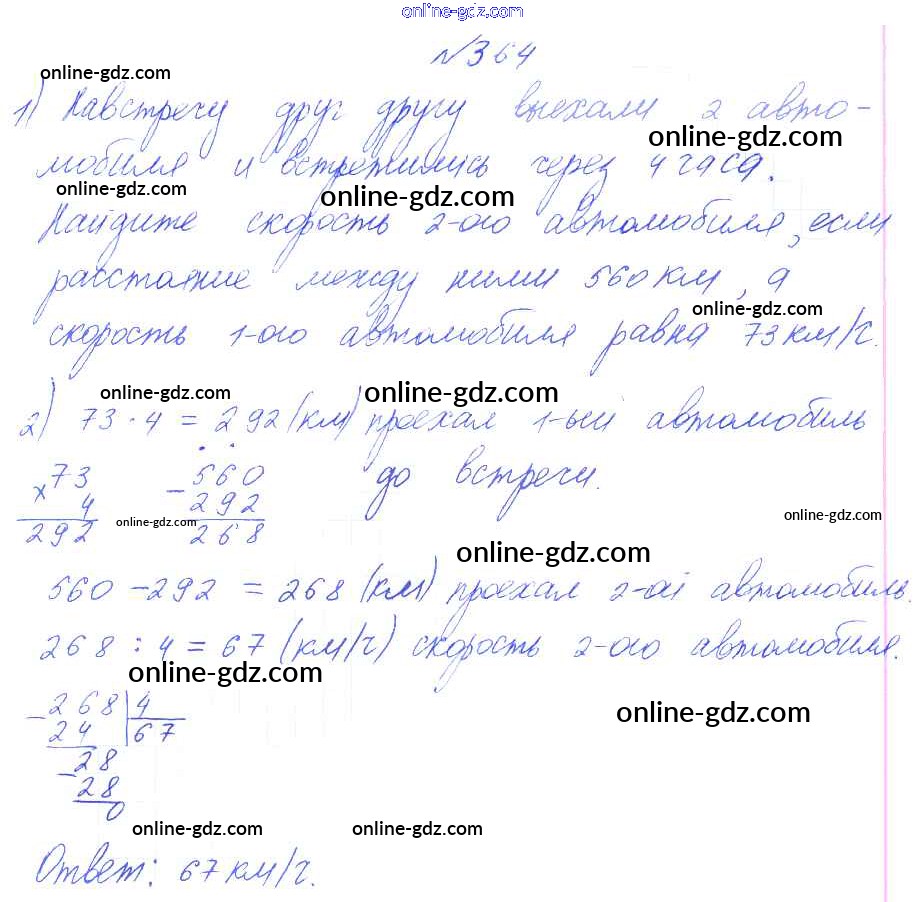 online-gdz.com
№364
online-gdz.com
1) Навстречу друг другу выехали 2 авто-
online-gdz.com
мобиля и встретились через 4 часа.
online-gdz.com
online-gdz.com
Найдите скорость 2-ого автомобиля, если
расстояние между ними 560 км, а
online-gdz.com
скорость 1-ого автомобиля равна 73 км/ч.
online-gdz.com
online-gdz.com
2) 73 · 4 = 292 (км) проехал 1-ый автомобиль
до встречи.
× 73
4
292
- 560
292
268
online-gdz.com
online-gdz.com
online-gdz.com
560 - 292 = 268 (км) проехал 2-ой автомобиль.
268 : 4 = 67 (км/ч) скорость 2-ого автомобиля.
online-gdz.com
- 268 | 4
24 | 67
online-gdz.com
- 28
28
0
online-gdz.com
online-gdz.com
Ответ: 67 км/ч.